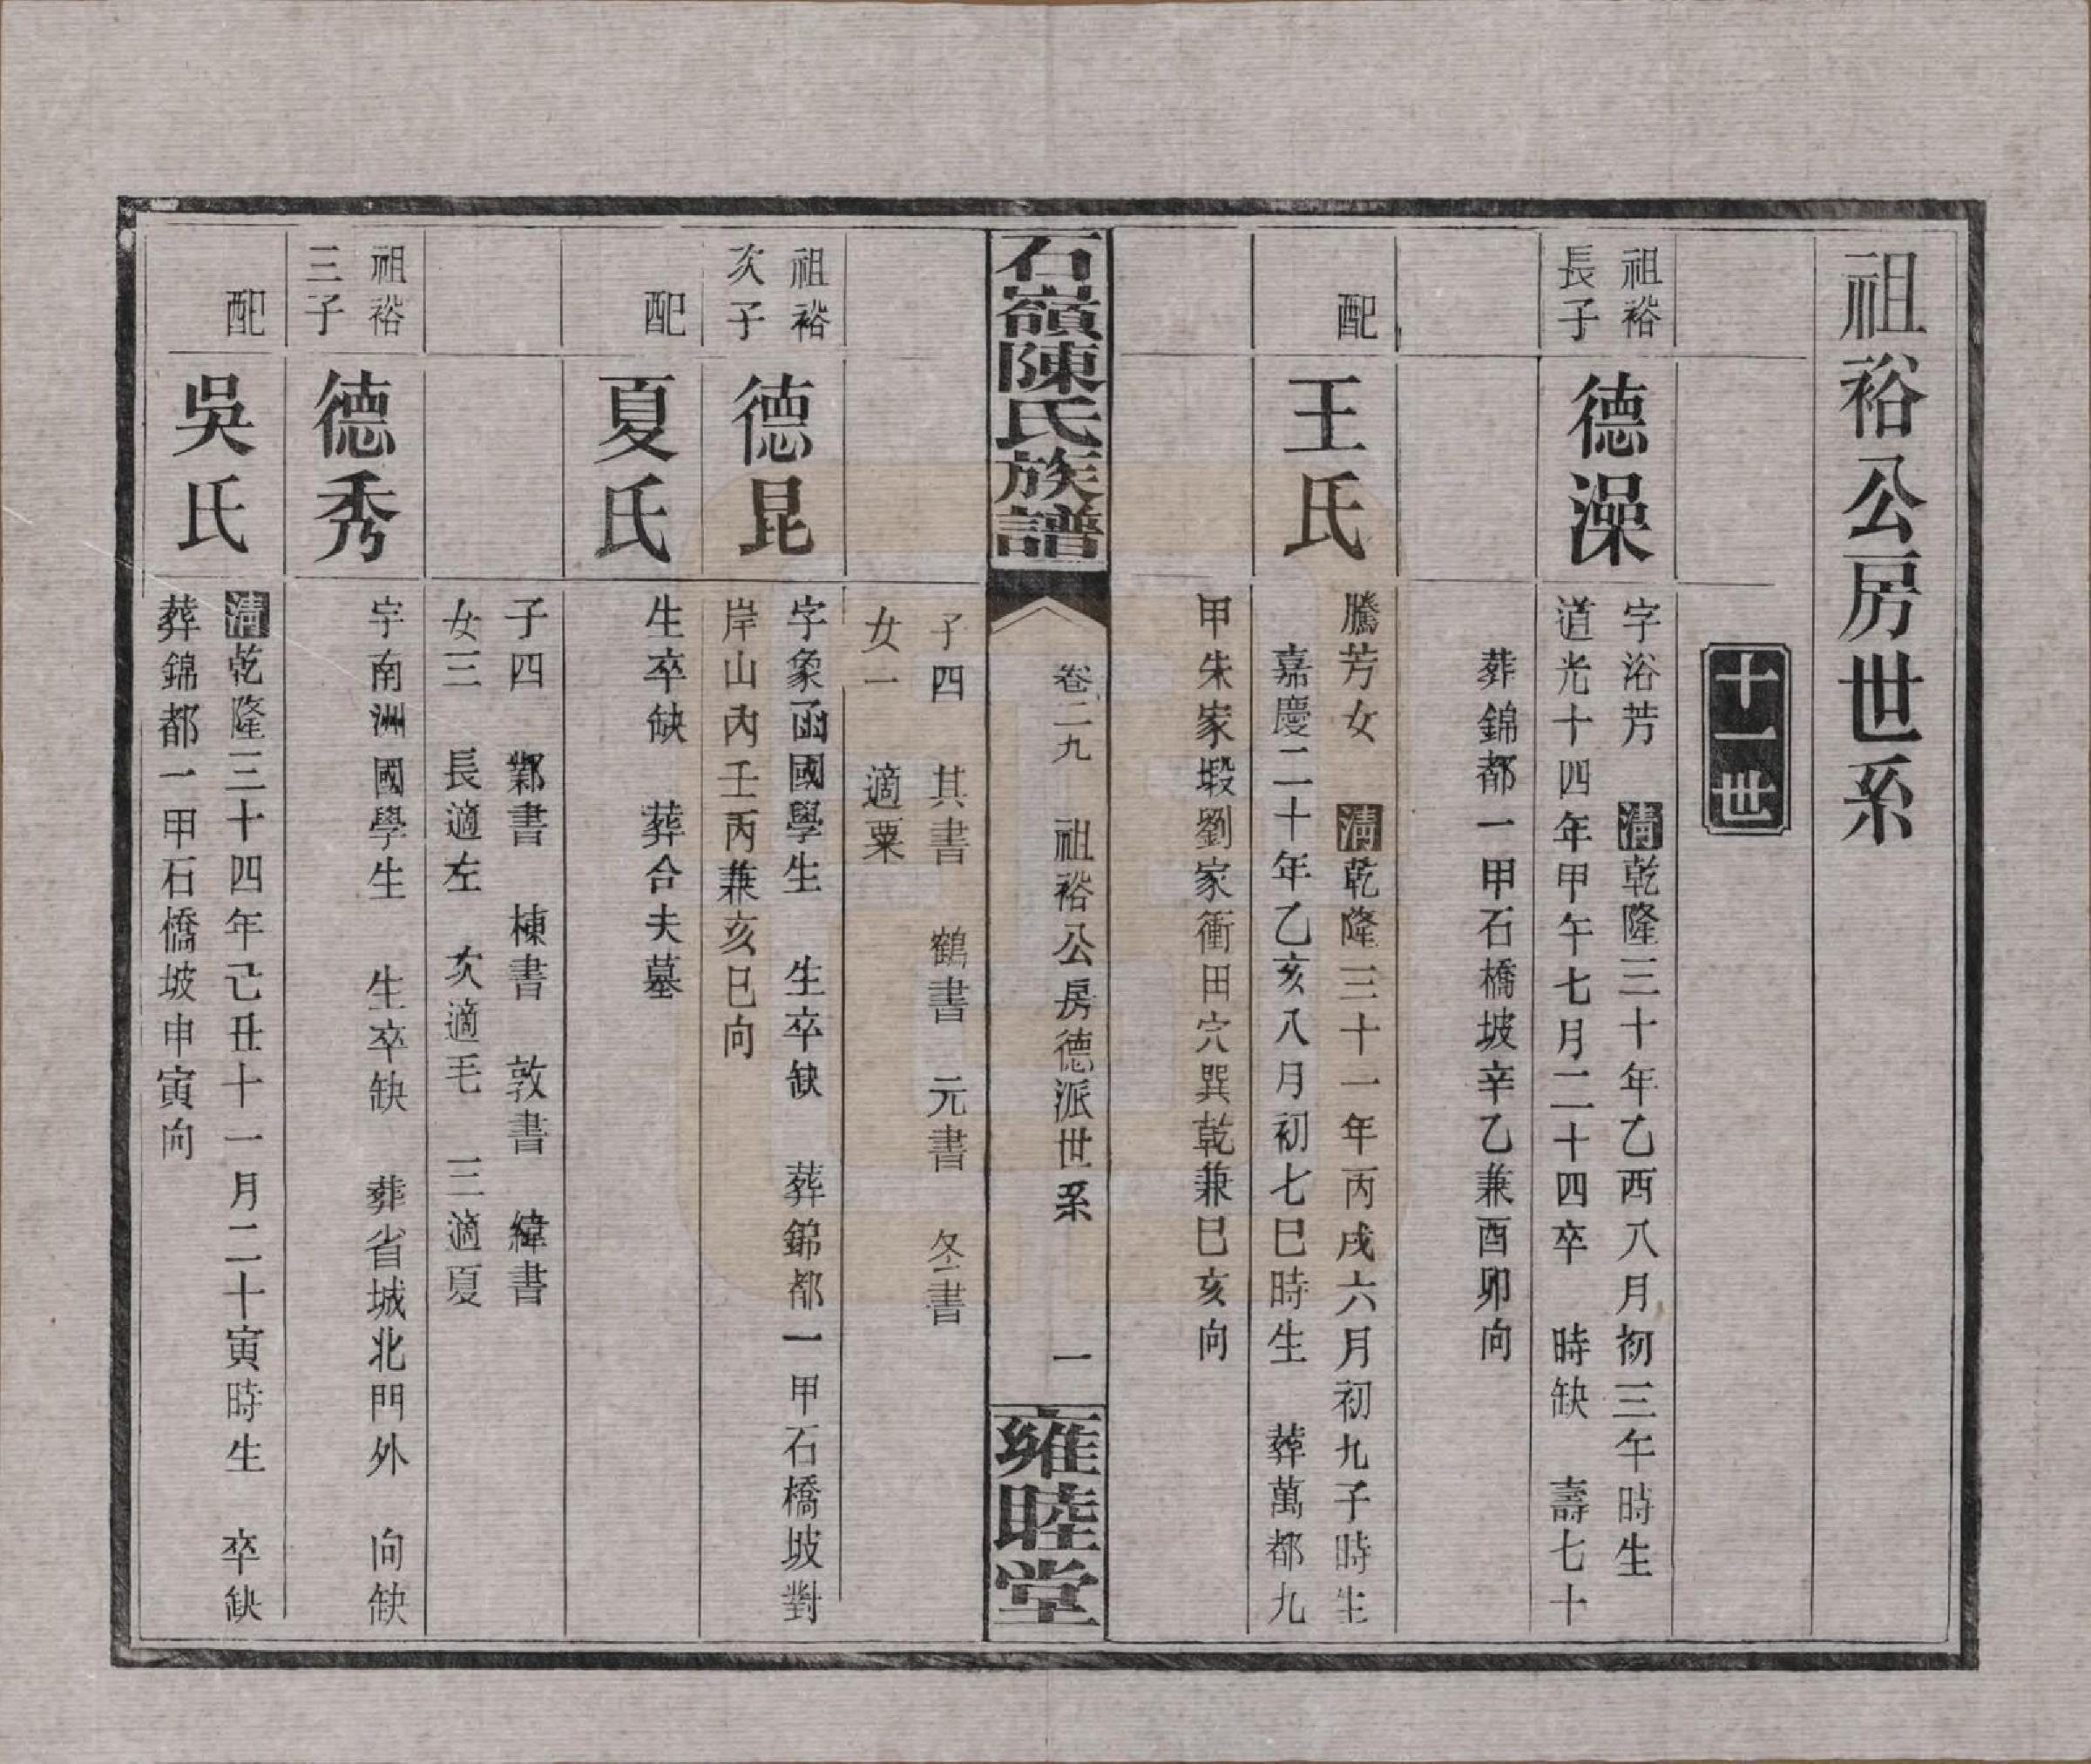 祖裕公房世系
十一世
祖裕
長子
德澡
字浴芳　清乾隆三十年乙酉八月初三午時生
道光十四年甲午七月二十四卒　時缺　壽七十
葬錦都一甲石橋坡辛乙兼酉卯向
配
王氏
騰芳女　清乾隆三十一年丙戌六月初九子時生
嘉慶二十年乙亥八月初七巳時生　葬萬都九
甲朱家塅劉家衝田穴巽乾兼巳亥向
石嶺陳氏族譜
卷二九　祖裕公房德派世系　一
雍睦堂
子四　其書　鶴書　元書　冬書
女一　適粟
祖裕
次子
德昆
字象函國學生　生卒缺　葬錦都一甲石橋坡對
岸山內壬丙兼亥巳向
配
夏氏
生卒缺　葬合夫墓
子四　鄴書　棟書　敦書　緯書
女三　長適左　次適毛　三適夏
祖裕
三子
德秀
字南洲國學生　生卒缺　葬省城北門外　向缺
配
吳氏
清乾隆三十四年己丑十一月二十寅時生　卒缺
葬錦都一甲石橋坡申寅向